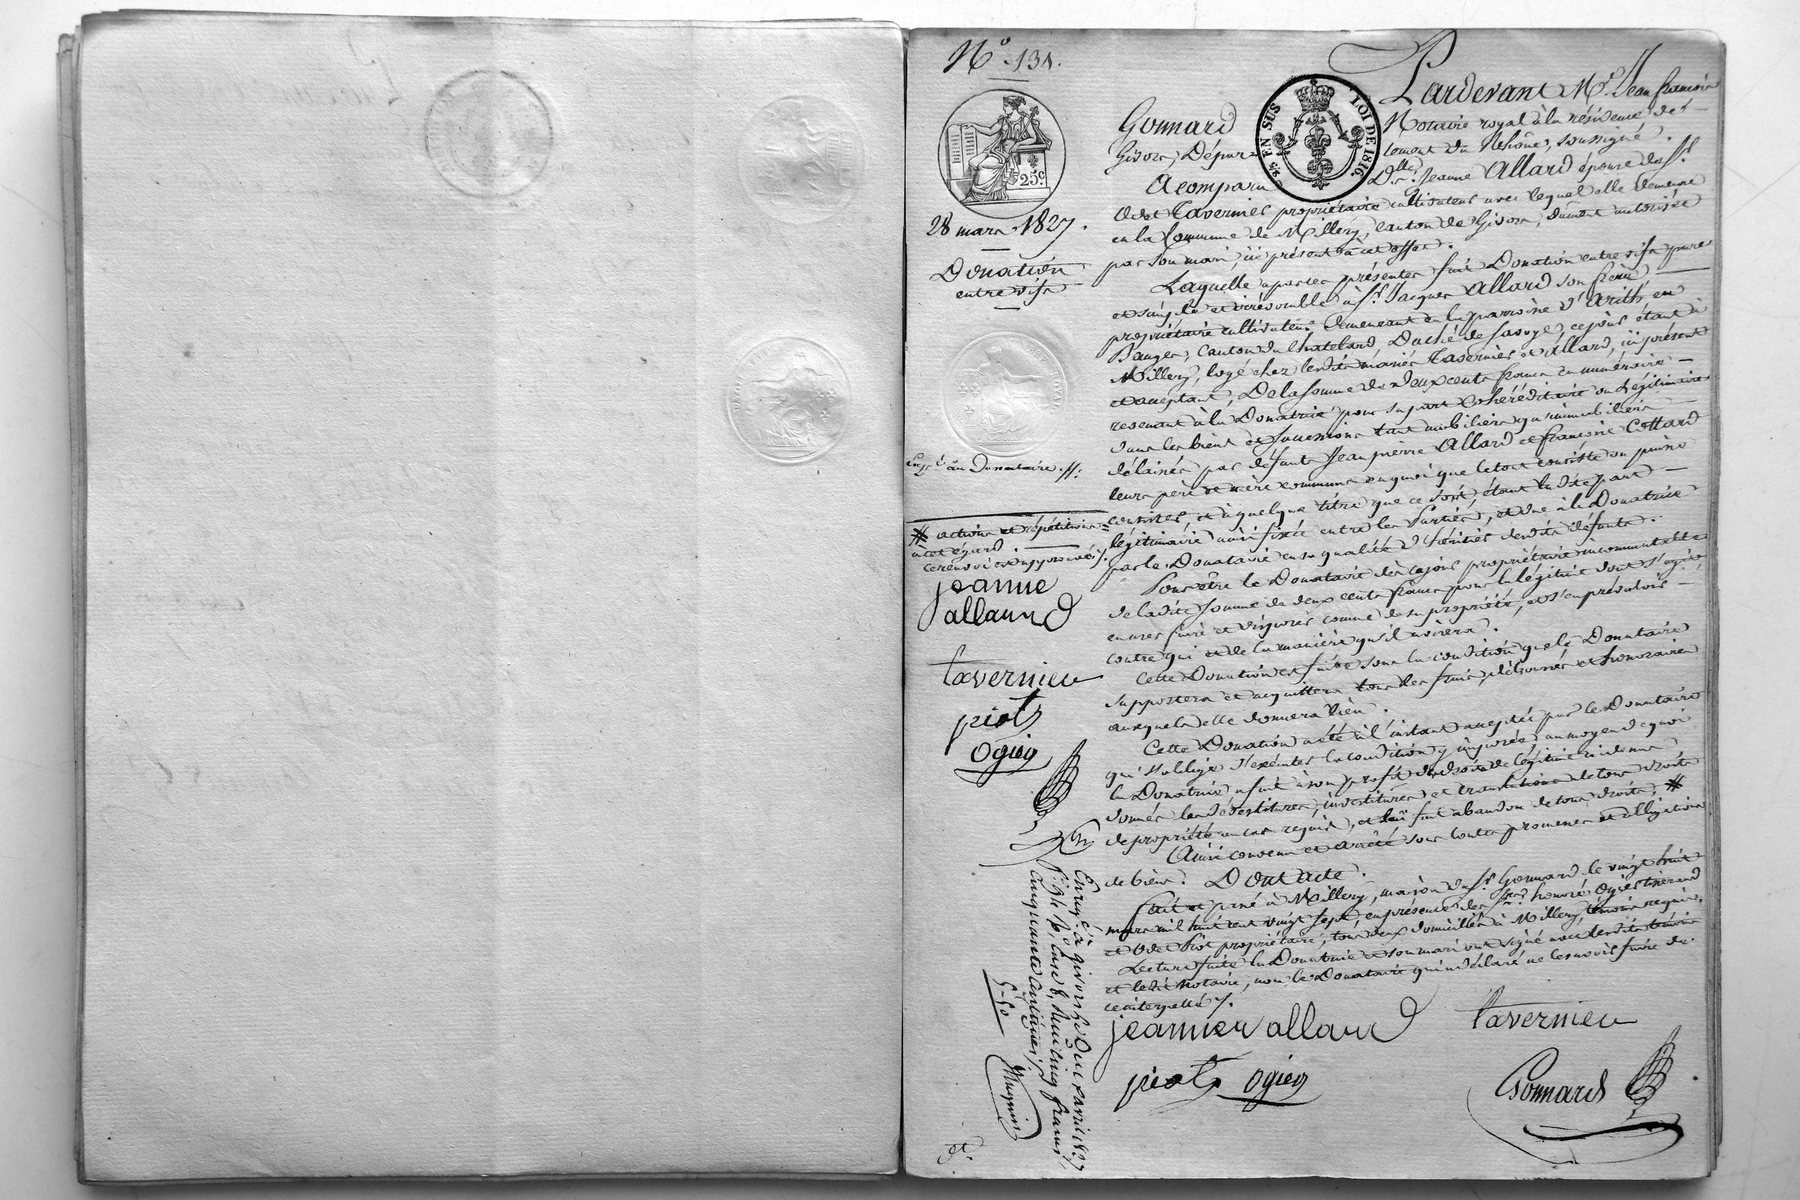 N.o 131.
25c
28 mars 1827.
Donation
entre vifs
Exp.é au Donataire ./.
# actions et répétitions
à cet égard.
ce renvoi est approuvé ./.
jeanne
allard
tavernier
piot
Ogier
5-50
Magnin
EN SUS LOI DE 1816.
Pardevant M.e Jean francois
Gonnard Notaire royal à la résidence de
Givors, Département du Rhône, soussigné.
A comparu D.lle Jeanne Allard épouse du S.r
Odet Tavernier propriétaire cultivateur avec lequel elle demeure
en la Commune de Millery, canton de Givors, dûment autorisée
par son mari, ici présent à cet effet.
Laquelle a par ces présentes fait Donation entre vifs pure
et simple et irrévocable à S.r Jacques Allard son frère
propriétaire cultivateur demeurant en la paroisse d'Arith, en
Bauges, Canton du Chatelard Duché de Savoye, ce jour étant à
Millery, logé chez lesdits mariés Tavernier et Allard, ici présent
et acceptant, De la somme de deux cents francs en numéraire
revenant à la Donatrice pour sa part cohéréditaire ou légitimaire
dans les biens et successions tant mobiliers qu'immobiliers
délaissés par défunts Jean pierre Allard et francoise Cottard
leurs père et mère communs en quoi que le tout consiste ou puisse
consister, et à quelque titre que ce soit, étant ladite part
légitimaire ainsi fixée entre les Parties, et due à la Donatrice
par le Donataire en sa qualité d'héritier desdits défunts.
Pour être le Donataire dès ce jour propriétaire incommutable
de ladite somme de deux cents francs pour la légitime dont s'agit
en user faire et disposer comme de sa propriété, et s'en prévaloir
contre qui et de la manière qu'il avisera.
Cette Donation est faite sous la condition que le Donataire
supportera et acquittera tous les frais, déboursés et honoraires
auxquels elle donnera lieu.
Cette Donation a été à l'instant acceptée par le Donataire
qui s'oblige d'exécuter la condition y imposée au moyen de quoi
la Donatrice a fait à son profit de droits de légitime ci dessus
donnés les dévestitures, investitures et translations de tous droits
de propriété en cas requis, et lui fait abandon de tous droits, #
Ainsi convenu et arrêté sous toutes promesses et obligations
de biens. Dont acte.
fait et passé à Millery, maison du S.r Gonnard le vingt huit
mars mil huit cent vingt sept, en présence des S.rs honoré Ogier tisserand
et Odet Piot propriétaire, tous deux domiciliés à Millery, témoins requis.
Lecture faite la Donatrice et son mari ont signé avec lesdits témoins
et ledit Notaire, non le Donataire qui a déclaré ne le savoir faire de
ce interpellé ./.
jeanne allard tavernier
piot Ogier Gonnard
Enreg.é à givors le deux avril 1827
cinq francs
cinquante centimes